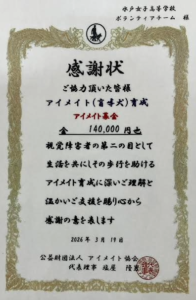 水戸女子高等学校
ボランティアチーム 様
感謝状
ご協力頂いた皆様
アイメイト(盲導犬)育成
アイメイト基金
金 140,000円也
視覚障害者の第二の目として
生活を共にしその歩行を助ける
アイメイト育成に深いご理解と
温かいご支援を賜り心から
感謝の意を表します
2026年 3月 19日
公益財団法人 アイメイト協会
代表理事 塩屋 隆男